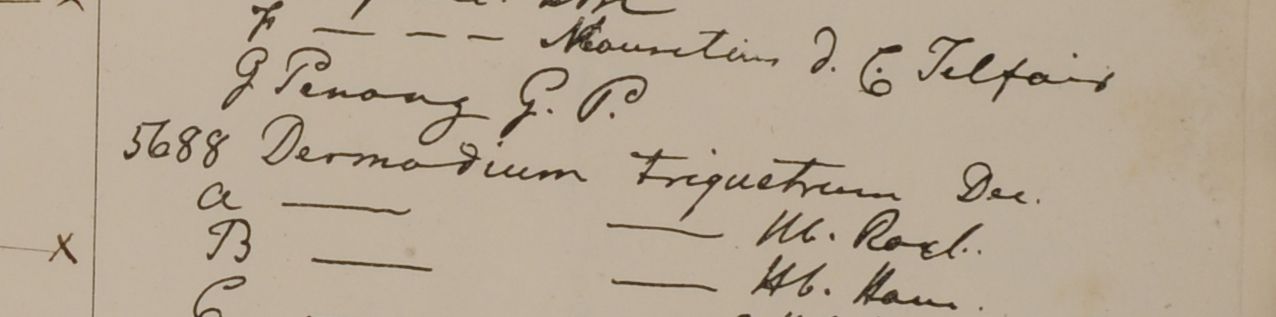 F — — — — Mauritius d. C. Telfair
G Penang G. P.
5688 Desmodium triquetrum Dec.
A — — Hb. Roxb.
B — — Hb. Ham.
C